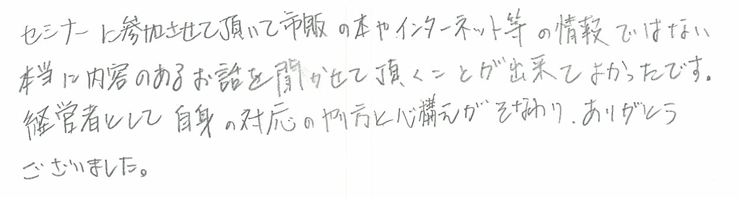 セミナーに参加させて頂いて市販の本やインターネット等の情報ではない
本当に内容のあるお話を聞かせて頂くことが出来てよかったです。
経営者として自身の対応のやり方と心構えがそなわり、ありがとう
ございました。